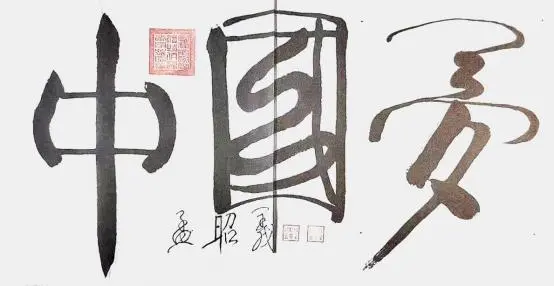 中國夢
孟昭義